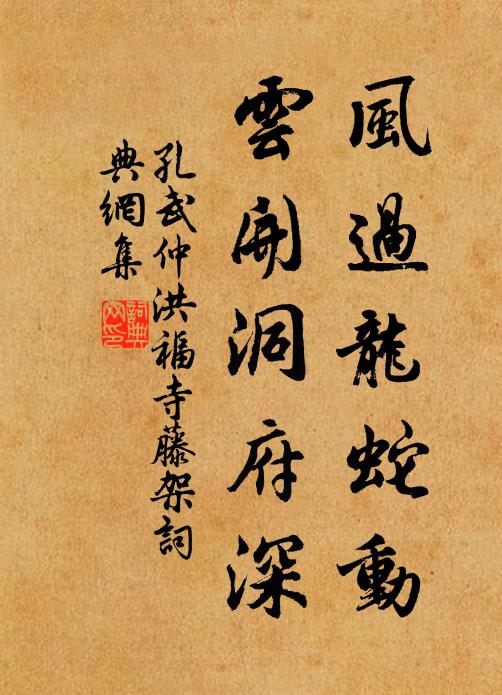 風過龍蛇動
雲開洞府深
孔武仲洪福寺藤架詞
典網集
詞典
网印